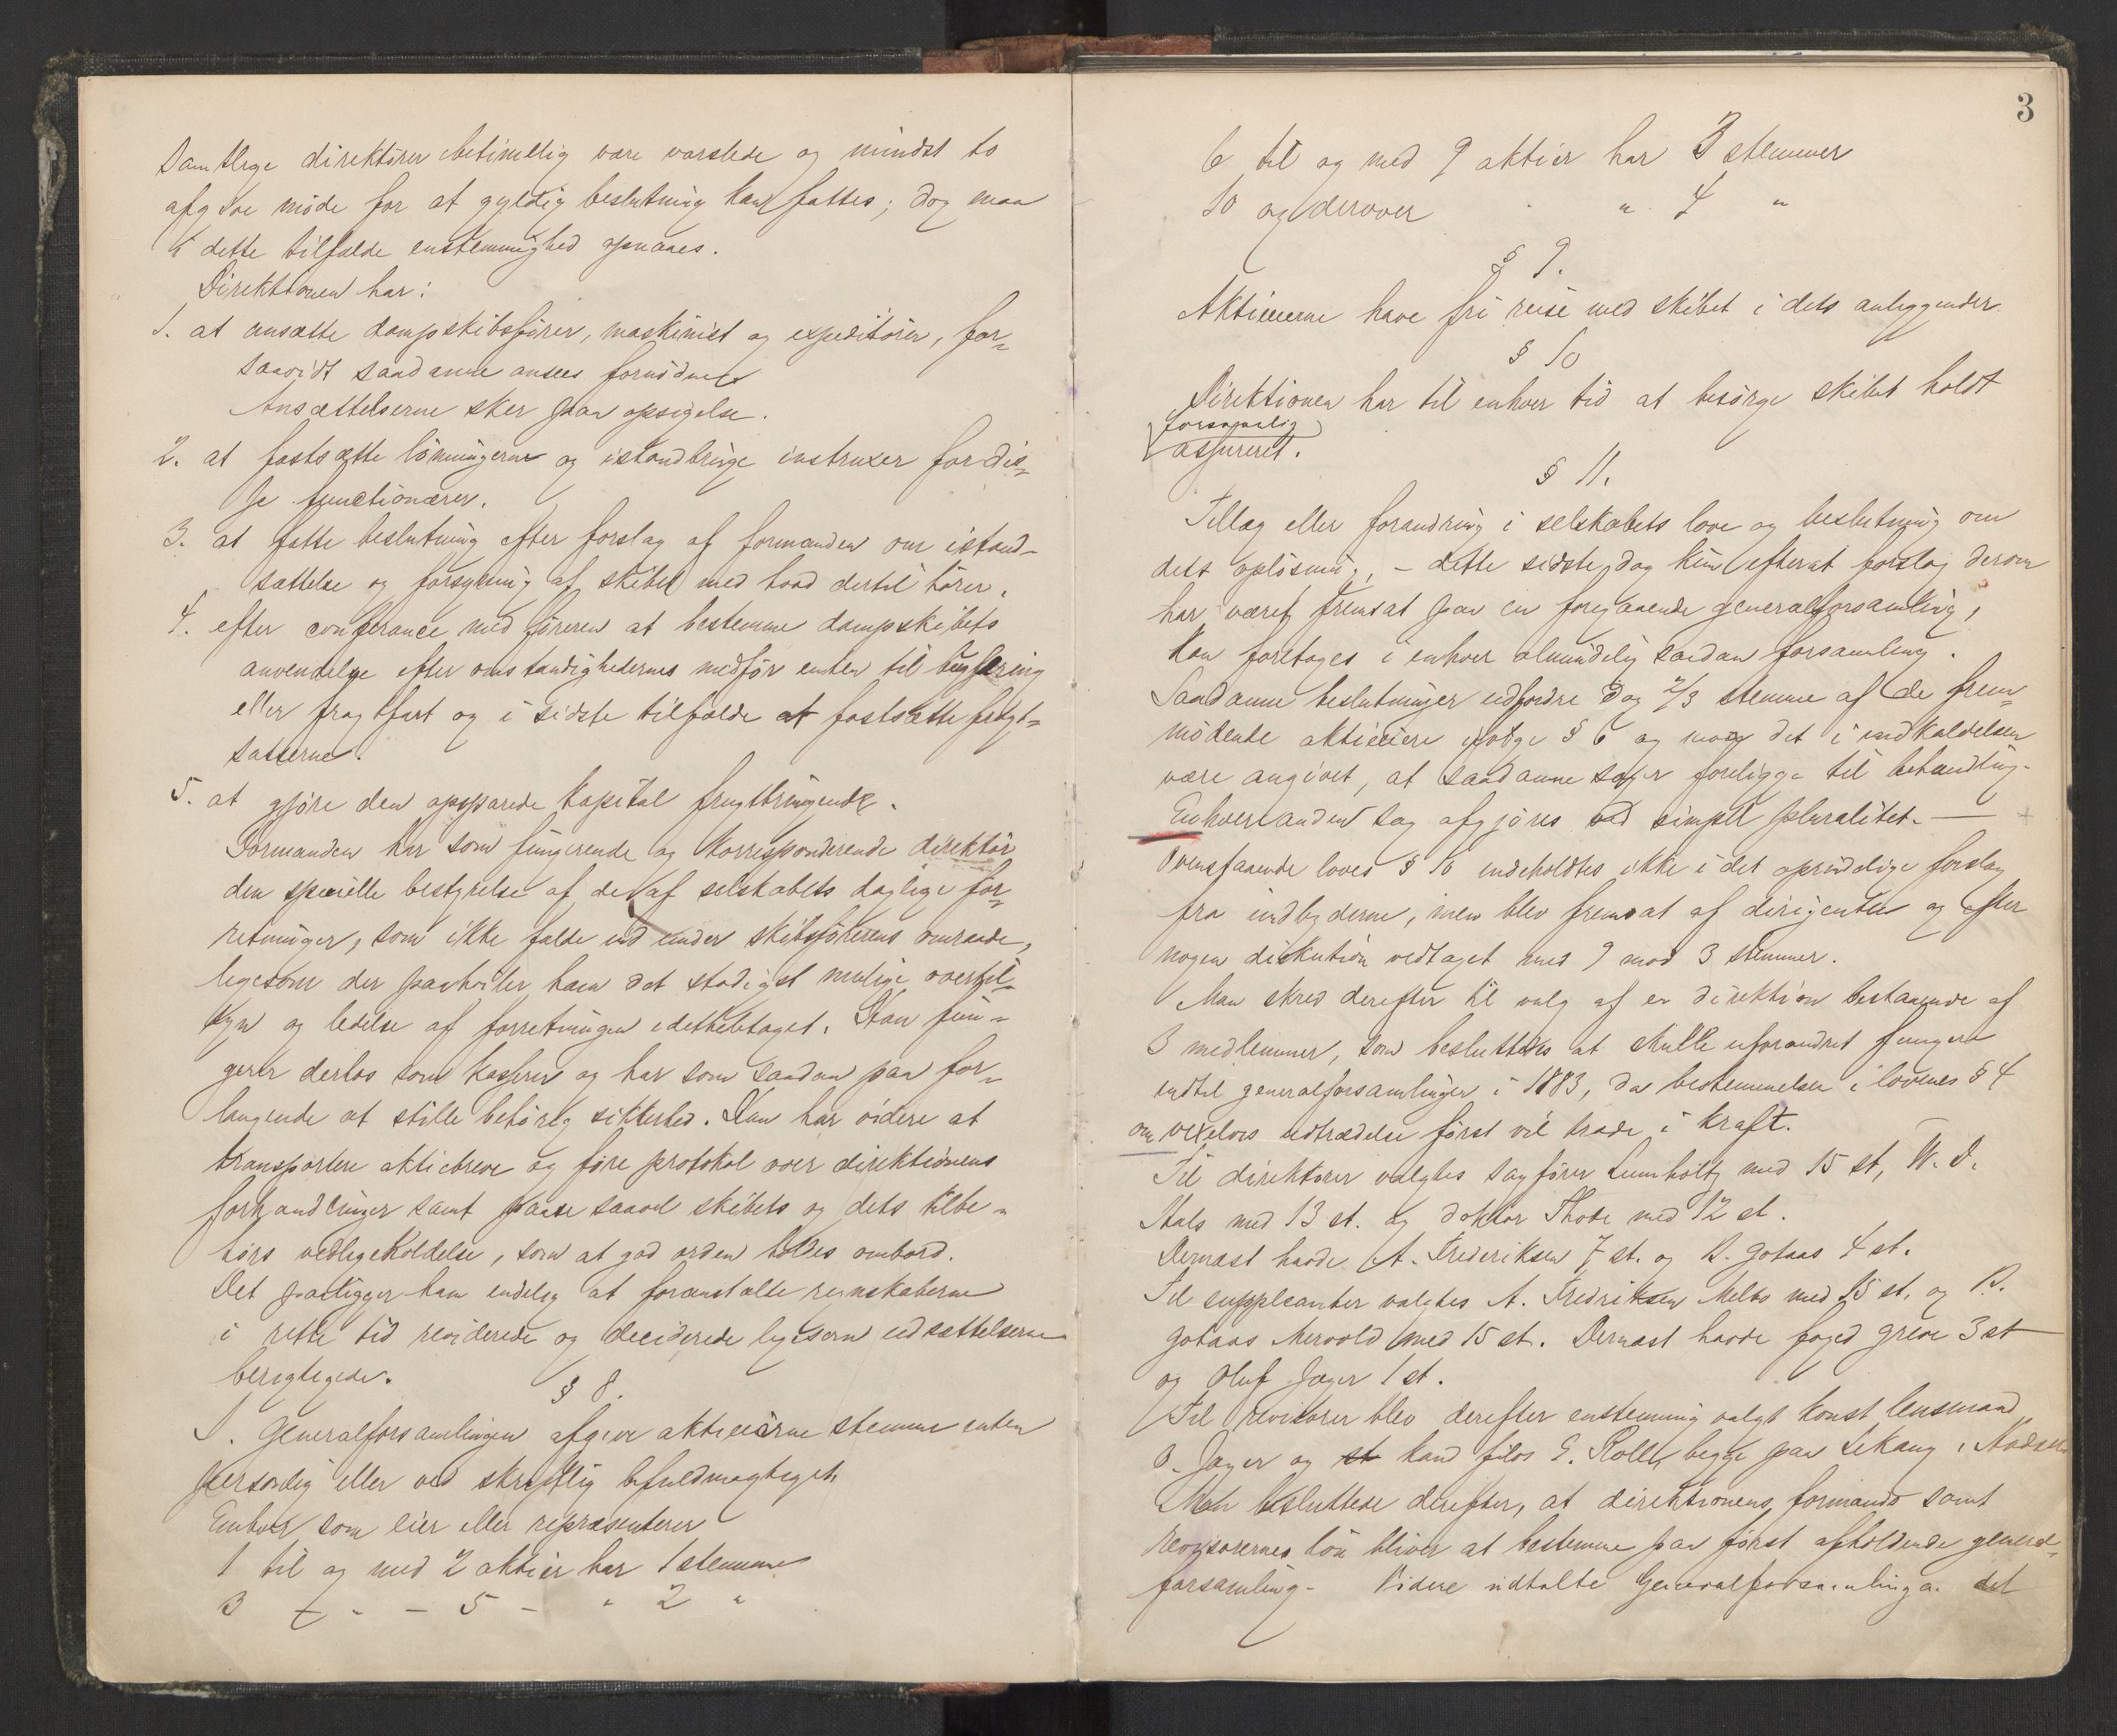 Samtlige direktører betimelig være varslede og mindst to
afgive møde for at gyldig beslutning kan fattes; dog maa
i dette tilfælde enstemmighed opnaaes.
Direktionen har:
1. at ansætte dampskibsfører, maskinist og expeditører, for=
saavidt saadanne ansees fornødne
Ansættelserne sker paa opsigelse.
2. at fastsætte lønningerne og istandbringe instruxer for dis=
se functionærer.
3. at fatte beslutning efter forslag af formanden om istand-
sættelse og forsyning af skibet med hvad dertil hører.
4. efter conferance med føreren at bestemme dampskibets
anvendelse efter omstændighedernes medfør enten til bugsering
eller fragtfart og i sidste tilfælde at fastsætte fragt=
satserne.
5. at gjøre den opsparede kapital frugtbringende.
Formanden har som fungerende og korresponderende direktør
den specielle bestyrelse af de af selskabets daglige for=
retninger, som ikke falde ind under skibsførerens omraade,
ligesom der paahviler ham det stadigst mulige overtil=
syn og ledelse af forretningen idetheletaget. Han fun=
gerer derhos som kasserer og har som saadan paa for=
langende at stille behørig sikkerhed. Han har videre at
transportere aktiebreve og føre protokol over direktionens
forhandlinger samt paase saavel skibets og dets tilbe=
hørs vedligeholdelse, som at god orden holdes ombord.
Det paaligger ham endelig at foranstalte regnskaberne
i rette tid reviderede og deciderede ligesom udsættelserne
berigtigede.
§ 8.
I. Generalforsamlingen afgiver aktieeierne stemme enten
personlig eller ved skriftlig befuldmægtiget.
Enhver som eier eller repræsenterer
1 til og med 2 aktier har 1 stemme
3 - " - 5 - " 2 "
3
6 til og med 9 aktier har 3 stemmer
10 og derover " 4 "
§ 9.
Aktieeierne have fri reise med skibet i dets anliggender
§ 10
Direktionen har til enhver tid at besørge skibet holdt
forsvarlig
assureret.
§ 11.
Tillæg eller forandring i selskabets love og beslutning om
dets opløsning, - dette sidste dog kun efterat forslag derom
har været fremsat paa en foregaaende generalforsamling,
kan foretages i enhver almindelig saadan forsamling.
Saadanne beslutninger udfordre dog 2/3 stemme af de frem=
mødende aktieeiere ifølge § 6 og maa det i indkaldelsen
være angivet, at saadanne sager foreligge til behandling.
Enhver anden sag afgjøres ved simpel pluralitet. —
Ovenstaaende loves § 10 indeholdtes ikke i det oprindelige forslag
fra indbyderne, men blev fremsat af dirigenten og efter
nogen diskution vedtaget med 9 mod 3 stemmer.
Man skred derefter til valg af en direktion bestaaende af
3 medlemmer, som besluttedes at skulle uforandret fungere
indtil generalforsamlingen i 1883, da bestemmelsen i lovenes § 4
om vexelvis udtrædelse først vil træde i kraft.
Til direktører valgtes sagfører Lumholtz med 15 st, W. D.
Hals med 13 st. og doktor Thode med 12 st.
Dernæst havde A. Frederiksen 7 st. og B. Gotaas 4 st.
Til suppleanter valgtes A. Fredriksen Melbo med 15 st. og B.
Gotaas Mervold med 15 st. Dernæst havde foged Greve 3 st
og Oluf Jæger 1 st.
Til revisorer blev derefter enstemmig valgt konst lensmand
O. Jæger og st kand filos E. Roll, begge paa Lekang i Hadsel
Man besluttede derefter, at direktionens formands samt
revisorernes løn bliver at bestemme paa først afholdende general=
forsamling - Videre udtalte Generalforsamlingen det